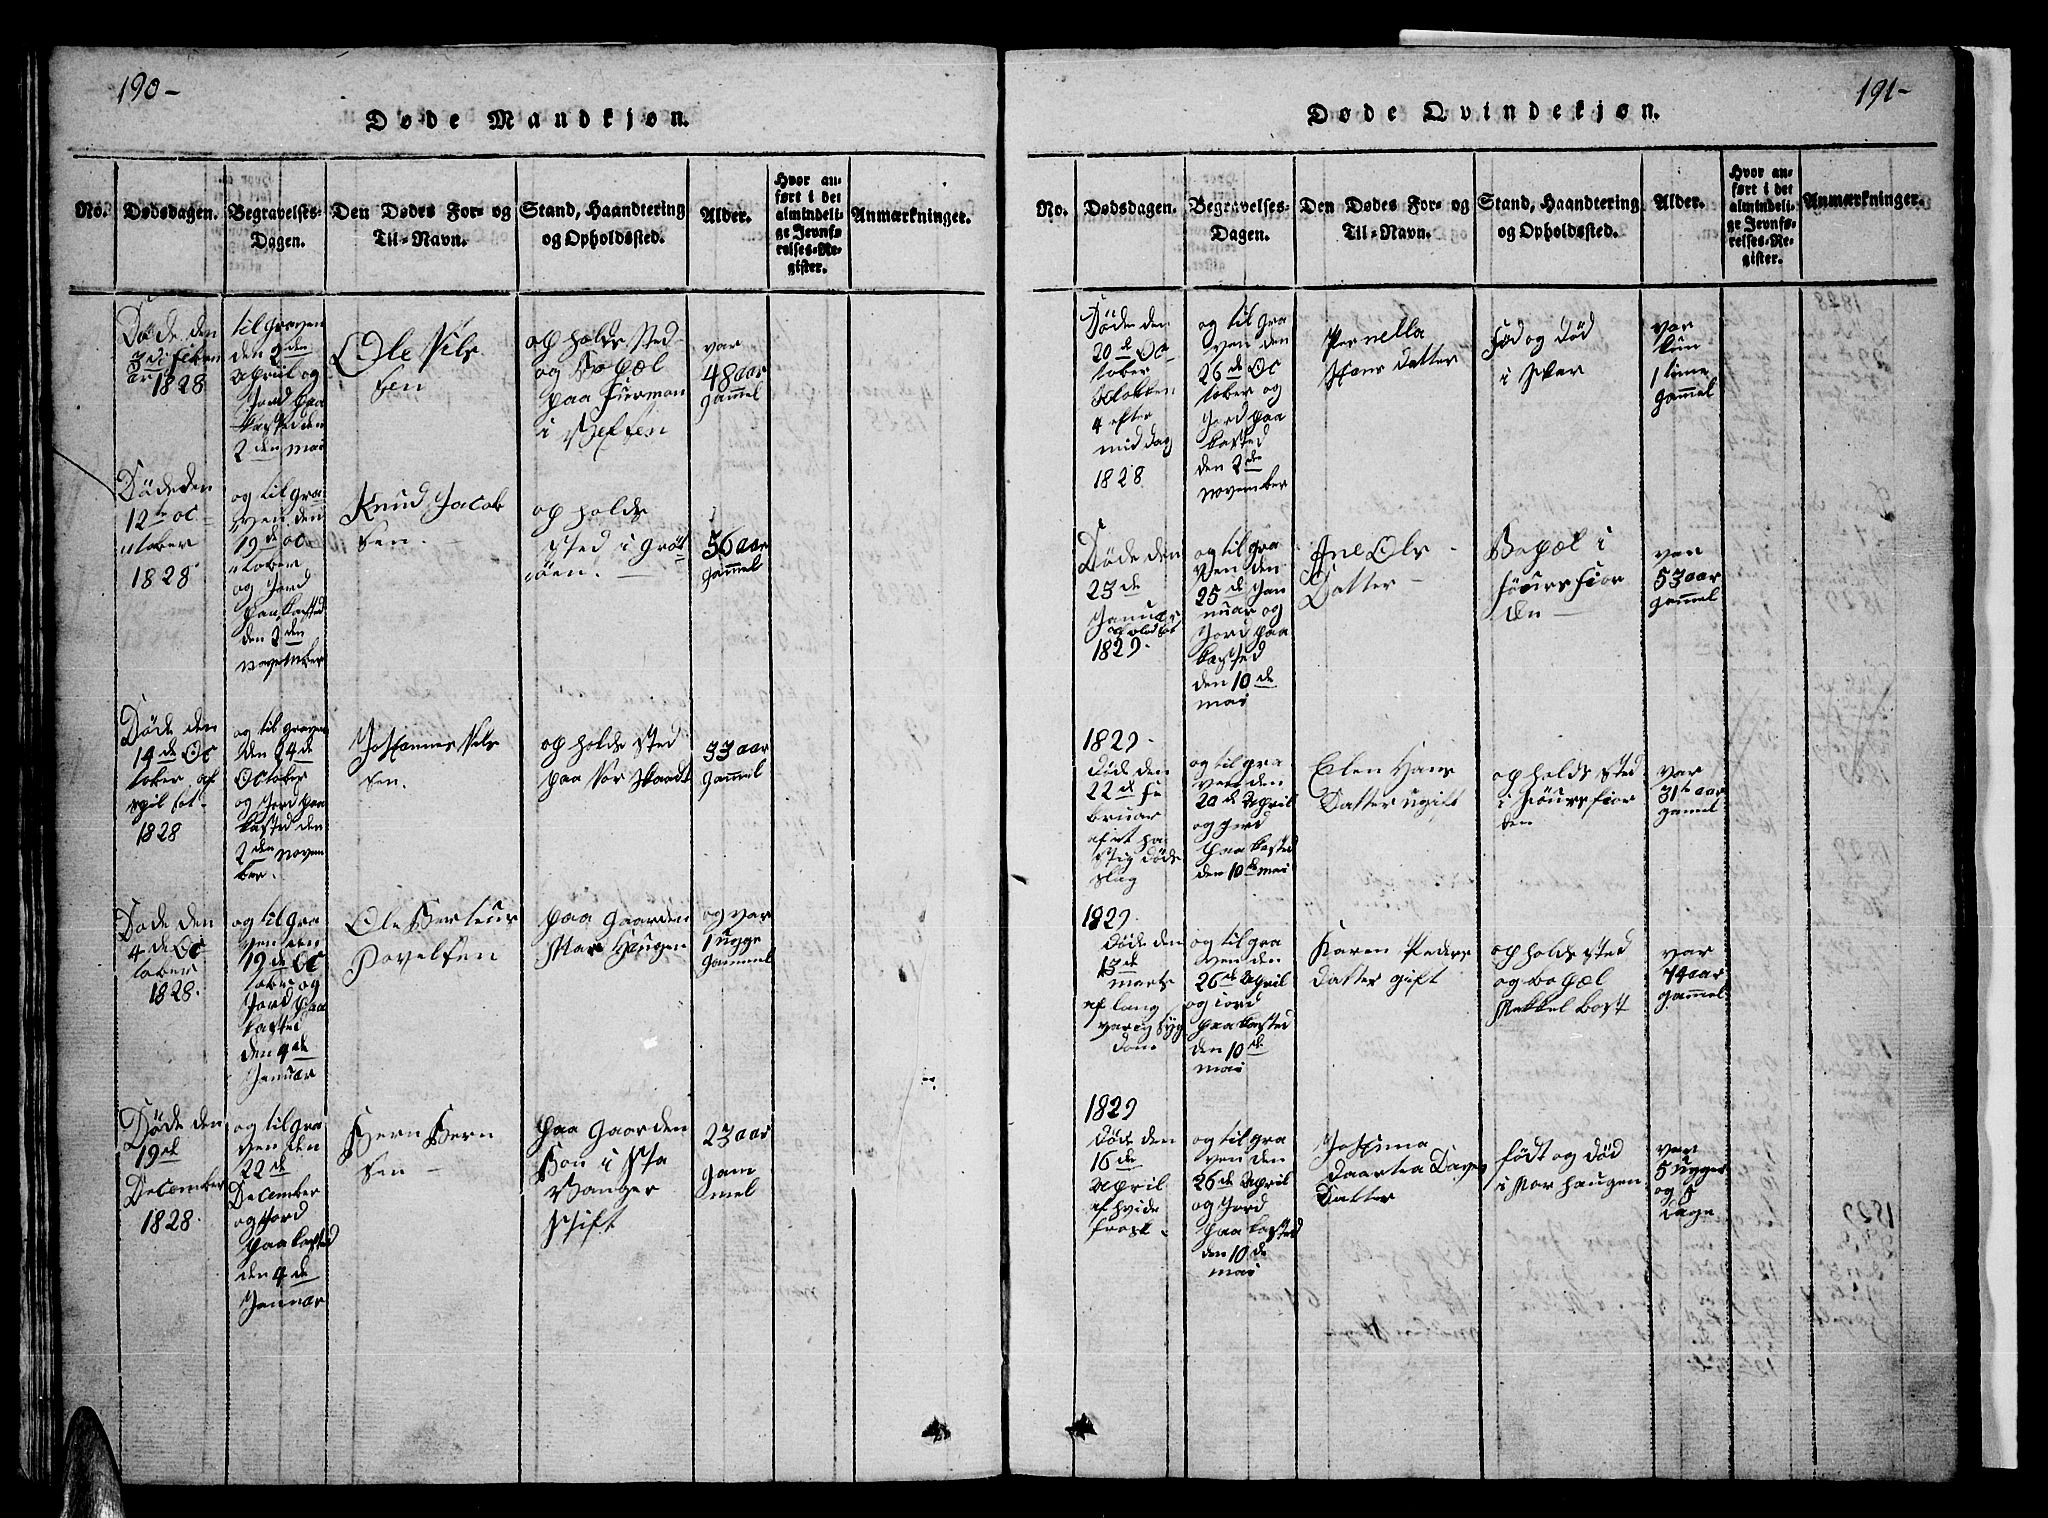 190-
Døde Mandkjøn.
No.
Dødsdagen.
Begravelses-
Dagen.
Den Dødes For- og
Til-Navn.
Stand, Haandtering
og Opholdssted.
Alder.
Hvor an-
ført i det
almindeli-
ge Jevnfø-
relses-Re-
gister.
Anmærkninger.
Døde den
3de
1828
til graven
den 2den
April og
Jord paa
kasted den
2den mai
Ole Nils
sen
op holds sted
og Bopæl
paa
i Vefsen
var
48 aar
gammel
Døde den
12te oc
tober
1828
og til gra
ven den
19de oc
tober
og Jord
paa kasted
den 2den
november
Knud Jacob
sen.
op holds
sted i Gröt
öen.
56 aar
gammel
Døde den
14de Oc
tober af
1828
og til graven
den 24de
October
og Jord paa
kasted den
2den novem
ber.
Johannes Nils
sen.
op holds sted
paa
33 aar
gammel
Døde den
4de Oc
tober
1828.
og til gra
ven den
19de Oc
tober og
Jord paa
kasted
den 4de
Januar
Ole Berteus
Povelsen
paa gaarden
Mar Haugen
og var
1 ugge
gammel
Døde den
19de
December
1828.
og til gra
ven den
22de
December
og Jord
paa kasted
den 4de
Januar
Bern Bern
sen
paa gaarden
i Sta
vanger
Stift
23 aar
gam
mel
191-
Døde Qvindekjøn.
No.
Dødsdagen.
Begravelses-
Dagen.
Den Dødes For- og
Til-Navn.
Stand, Haandtering
og Opholdssted.
Alder.
Hvor an-
ført i det
almindeli-
ge Jevnfø-
relses-Re-
gister.
Anmærkninger.
Døde den
20de Oc
tober
Klokken
4 efter
middag
1828
og til gra
ven den
26de Oc
tober og
Jord paa
kasted
den 2den
november
Pernella
Hans datter
Fød og Død
i
var
kun
1 time
gammel
Døde den
23de
Januar
1829.
og til gra
ven den
25de Jan
nuar og
Jord paa
kasted
den 10de
mai
Ane Ols
Datter
Bopæl i
fior
den
var
53 aar
gammel
1829.
Døde den
22de Fe
bruar
af et ha
stig döds
slag
og til gra
ven den
20de April
og jord
paa kasted
den 10de mai
Elen Hans
Datter ugift
op holds sted
i fior
den
var
31te aar
gamel
1829.
Døde den
13de
marts
af lang
varig syg
dom
og til gra
ven den
26de April
og iord
paa kasted
den 10de
mai
Karen Peders
datter gift
op holds sted
og bopæl
Mekkel bost
var
74 aar
gammel
1829
Døde den
16de
April
af hvide
frosk.
og til gra
ven den
26de April
og Jord
paa kasted
den 10de
mai
Johanna
Daartea
Datter
födt og död
i Mar haugen
var
5 ugger
og 5
dage